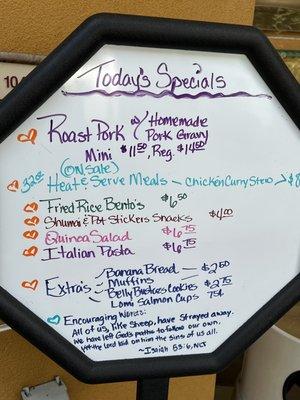 104
Today's Specials
Roast Pork w/ Homemade
Pork Gravy
Mini $11.50, Reg. $14.50
(ON SALE)
32oz Heat & Serve Meals - Chicken Curry Stew > $8
Fried Rice Bento's $6.50
Shumai & Pot Stickers Snacks $4.00
Quinoa Salad $6.75
Italian Pasta $6.75
Extra's
Banana Bread - $2.50
Muffins
Belly Busters Cookies $2.75
Lomi Salmon Cups 75¢
Encouraging Words:
All of us, like sheep, have strayed away.
We have left God's paths to follow our own.
Yet the Lord laid on him the sins of us all.
~Isaiah 53:6, NLT